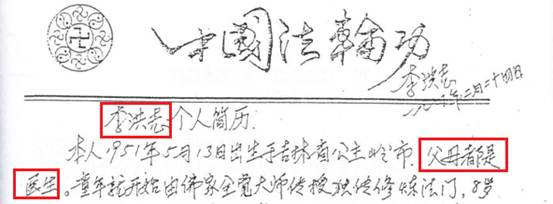 中國法輪功
李洪志
李洪志个人简历.
本人1951年5月13日出生于吉林省公主岭市.父母都是
医生。童年就开始由佛家全觉大师传授独传修炼法门,8岁